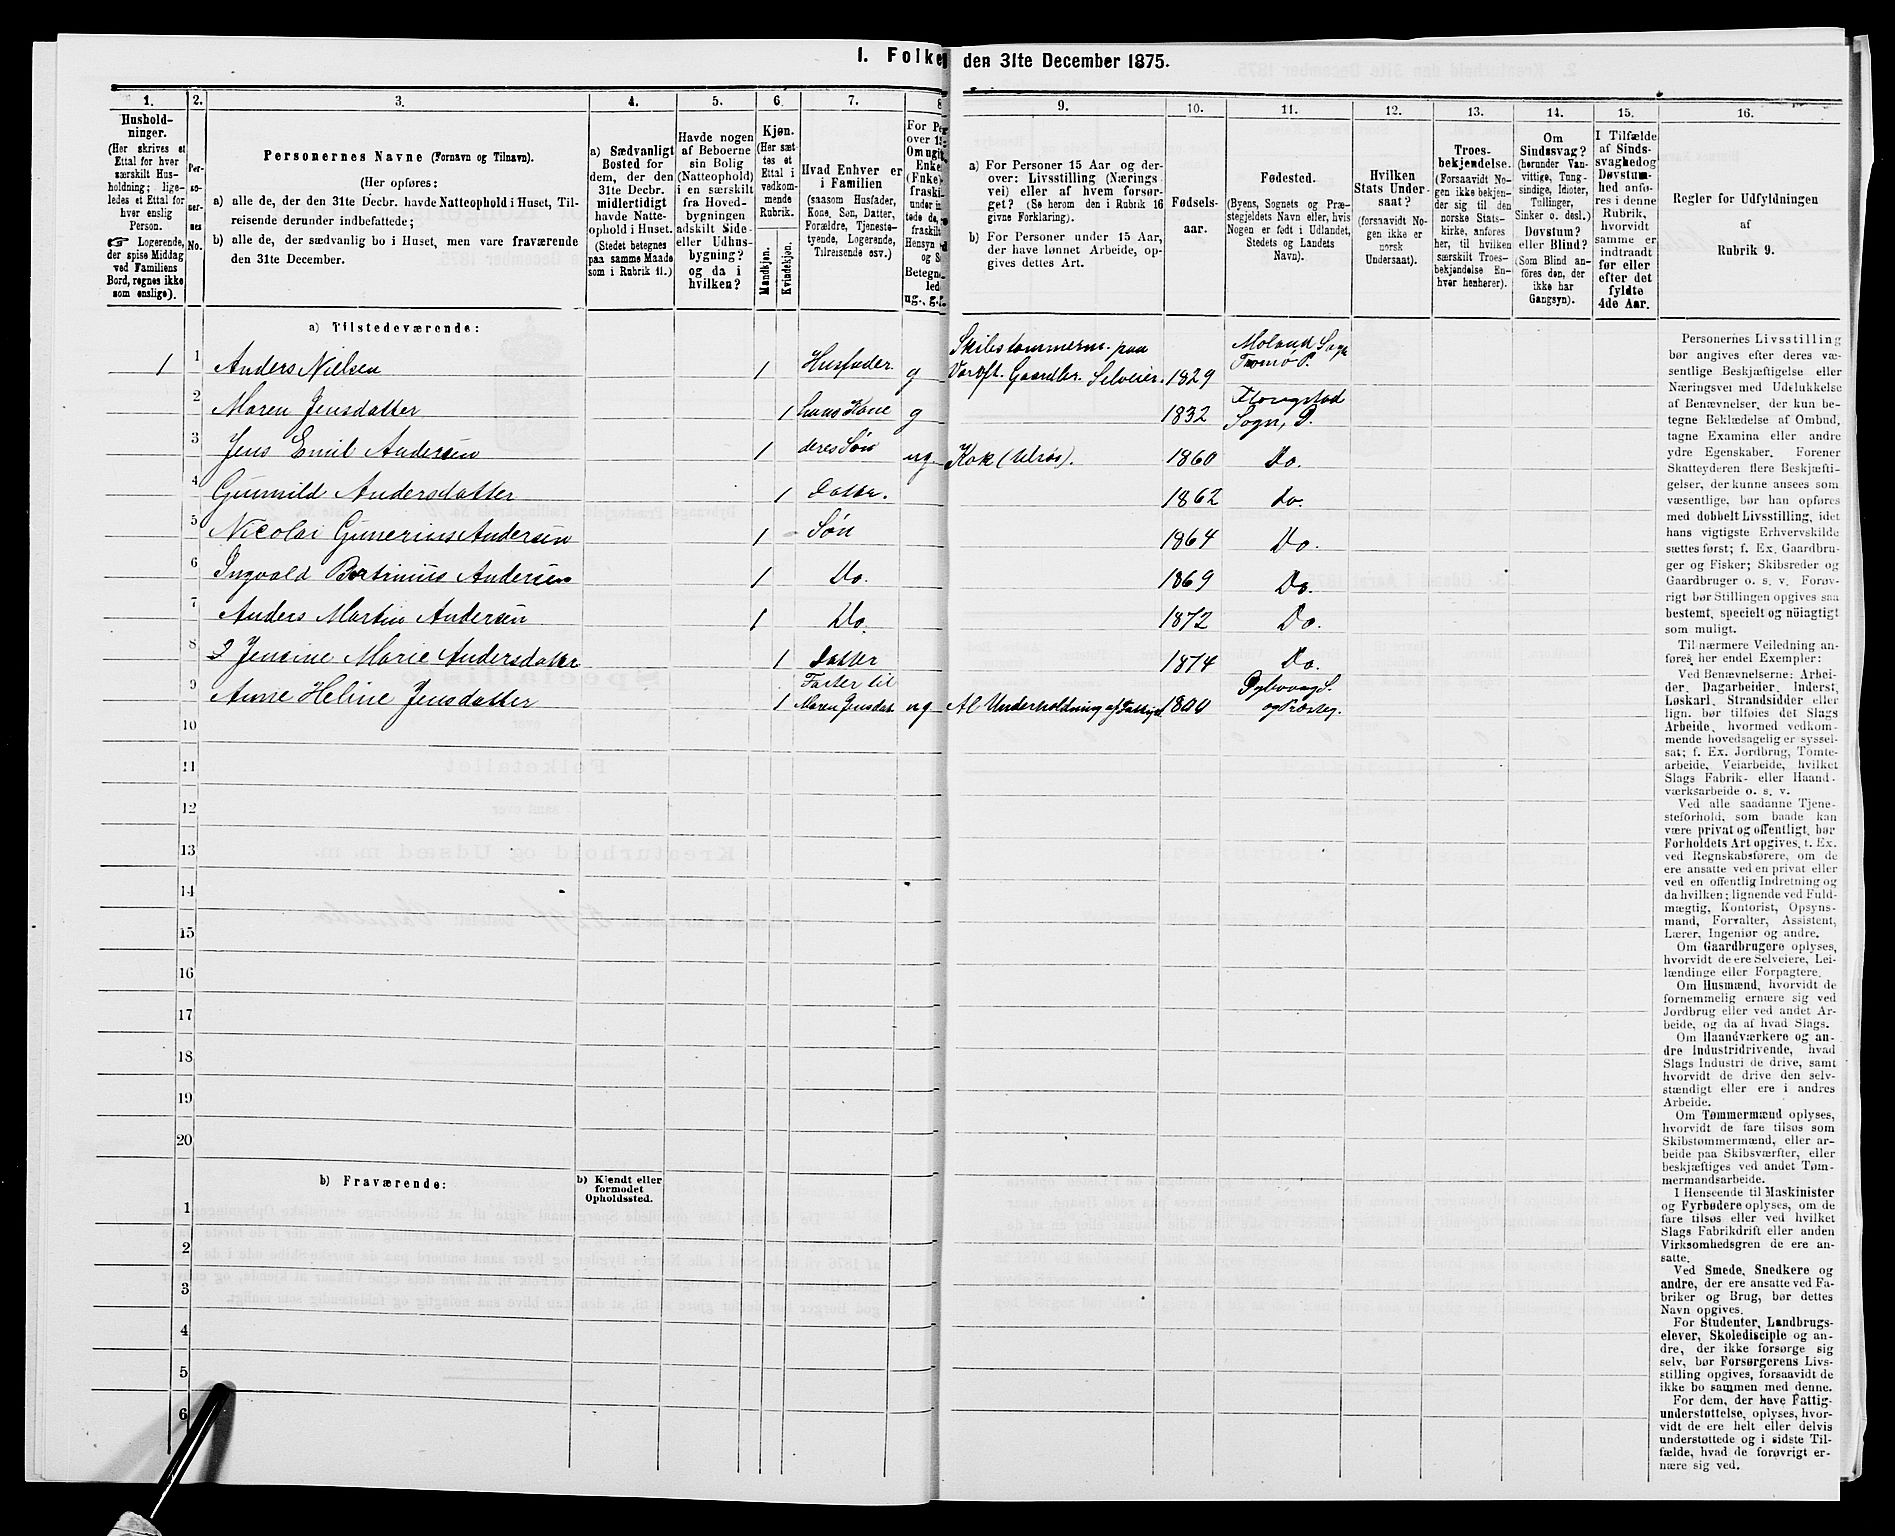 I. Folke den 31te December 1875.
1. 2. 3. 4. 5. 6. 7. 8 9. 10. 11. 12. 13. 14. 15. 16.
Hushold-
ninger.
(Her skrives et
Ettal for hver
særskilt Hus-
holdning; lige-
ledes et Ettal for
hver enslig
Person.
☞ Logerende,
der spise Middag
ved Familiens
Bord, regnes ikke
som enslige).
Per-
so-
ner-
nes
No.
Personernes Navne (Fornavn og Tilnavn).
(Her opføres:
a) alle de, der den 31te Decbr. havde Natteophold i Huset, Til-
reisende derunder indbefattede;
b) alle de, der sædvanlig bo i Huset, men vare fraværende
den 31te December.
a) Sædvanligt
Bosted for
dem, der den
31te Decbr.
midlertidigt
havde Natte-
ophold i Huset.
(Stedet betegnes
paa samme Maade
som i Rubrik 11.)
Havde nogen
af Beboerne
sin Bolig
(Natteophold)
i en særskilt
fra Hoved-
bygningen
adskilt Side-
eller Udhus-
bygning?
og da i
hvilken?
Kjøn.
(Her sæt-
tes et
Ettal i
vedkom-
mende
Rubrik.
Mandkjøn.
Kvindekjøn.
Hvad Enhver er
i Familien
(saasom Husfader,
Kone, Søn, Datter,
Forældre, Tjeneste-
tyende, Logerende,
Tilreisende osv.)
For Pe
over 15
Om ugit
Enke
(Enke)
fraskil
under in
tede de,
fraskilt
Hensyn
og S
Betegn
led
ug., g.,
a) For Personer 15 Aar og der-
over: Livsstilling (Nærings
vei) eller af hvem forsør-
get? (Se herom den i Rubrik 16
givne Forklaring).
b) For Personer under 15 Aar,
der have lønnet Arbeide, op-
gives dettes Art.
Fødsels-
aar.
Fødested.
(Byens, Sognets og Præ-
stegjeldets Navn eller, hvis
Nogen er født i Udlandet,
Stedets og Landets
Navn).
Hvilken
Stats Under-
saat?
(forsaavidt No-
gen ikke er
norsk
Undersaat).
Troes-
bekjendelse.
(Forsaavidt No-
gen ikke bekjen-
der sig til den
norske Stats-
kirke, anføres
her, til hvilken
særskilt Troes-
bekjendelse En-
hver henhører).
Om
Sindssvag?
(herunder Van-
vittige, Tung-
sindige, Idioter,
Tullinger,
Sinker o. desl.)
Døvstum?
eller Blind?
(Som Blind an-
føres den, der
ikke har
Gangsyn).
I Tilfælde
af Sinds-
svaghed og
Døvstum-
hed anfø-
res i denne
Rubrik,
hvorvidt
samme er
indtraadt
før eller
efter det
fyldte
4de Aar.
Regler for Udfyldningen
af
Rubrik 9.
a) Tilstedeværende:
1 1 Anders Nielsen 1 Husfader g Skibstømmerm. paa
Værft. Gaardbr. Selveier. 1829 Moland Sogn
Tromø P.
2 Maren Jensdatter 1 hans Kone g 1832 Flosgstad
Sogn, P.
3 Jens Emil Andersen 1 deres Søn ug Kok (tilsøs). 1860 Do.
4 Gunnild Andersdatter 1 Datter. 1862 Do.
5 Nicolai Gunerius Andersen 1 Søn 1864 Do.
6 Ingvald Bertinius Andersen 1 Do. 1869 Do.
7 Anders Martin Andersen 1 Do. 1872 Do.
8 Jensine Marie Andersdatter 1 Datter 1874 Do.
9 Anne Heline Jensdatter 1 Faster til
Maren Jensdat. ug Al Underholdning af Fattigv. 1800 Dybvaag S.
og Præsteg.
10
11
12
13
14
15
16
17
18
19
20
b) Fraværende:
b) Kjendt eller
formodet
Opholdssted.
1
2
3
4
5
6
Personernes Livsstilling
bør angives efter deres væ-
sentlige Beskjæftigelse eller
Næringsvei med Udelukkelse
af Benævnelser, der kun be-
tegne Beklædelse af Ombud,
tagne Examina eller andre
ydre Egenskaber. Forener
Skatteyderen flere Beskjæfti-
gelser, der kunne ansees som
væsentlige, bør han opføres
med dobbelt Livsstilling, idet
hans vigtigste Erhvervskilde
sættes først; f. Ex. Gaardbru-
ger og Fisker; Skibsreder og
Gaardbruger o. s. v. Forøv-
rigt bør Stillingen opgives saa
bestemt, specielt og nöiagtigt
som muligt.
Til nærmere Veiledning an-
føres her endel Exempler:
Ved Benævnelserne: Arbei-
der, Dagarbeider, Inderst,
Løskarl, Strandsidder eller
lign. bør tilføies det Slags
Arbeide, hvormed vedkom-
mende hovedsagelig er syssel-
sat; f. Ex. Jordbrug, Tomte-
arbeide, Veiarbeide, hvilket
Slags Fabrik- eller Haand-
værksarbeide o. s. v.
Ved alle saadanne Tjene-
steforhold, som baade kan
være privat og offentligt, bør
Forholdets Art opgives, f. Ex.
ved Regnskabsførere, om de
ere ansatte ved en privat eller
ved en offentlig Indretning og
da hvilken; lignende ved Fuld-
mægtig, Kontorist, Opsyns-
mand, Forvalter, Assistent,
Lærer, Ingeniør og andre.
Om Gaardbrugere oplyses,
hvorvidt de ere Selveiere, Lei-
lændinge eller Forpagtere.
Om Husmænd, hvorvidt de
fornemmelig ernære sig ved
Jordbrug eller ved andet Ar-
beide, og da af hvad Slags.
Om Haandværkere og an-
dre Industridrivende, hvad
Slags Industri de drive, samt
hvorvidt de drive den selv-
stændigt eller ere i andres
Arbeide.
Om Tømmermænd oplyses,
hvorvidt de fare tilsøs som
Skibstømmermænd, eller ar-
beide paa Skibsværfter, eller
beskjæftiges ved andet Tøm-
mermandsarbeide.
I Henseende til Maskinister
og Fyrbødere oplyses, om de
fare tilsøs eller ved hvilket
Slags Fabrikdrift eller anden
Virksomhedsgren de ere an-
satte.
Ved Smede, Snedkere og
andre, der ere ansatte ved Fa-
briker og Brug, bør dettes
Navn opgives.
For Studenter, Landbrugs-
elever, Skoledisciple og an-
dre, der ikke forsørge sig
selv, bør Forsørgerens Livs-
stilling opgives, forsaavidt de
ikke bo sammen med denne.
For dem, der have Fattig-
understøttelse, oplyses, hvor-
vidt de ere helt eller delvis
understøttede og i sidste Til-
fælde, hvad de forøvrigt er-
nære sig ved.